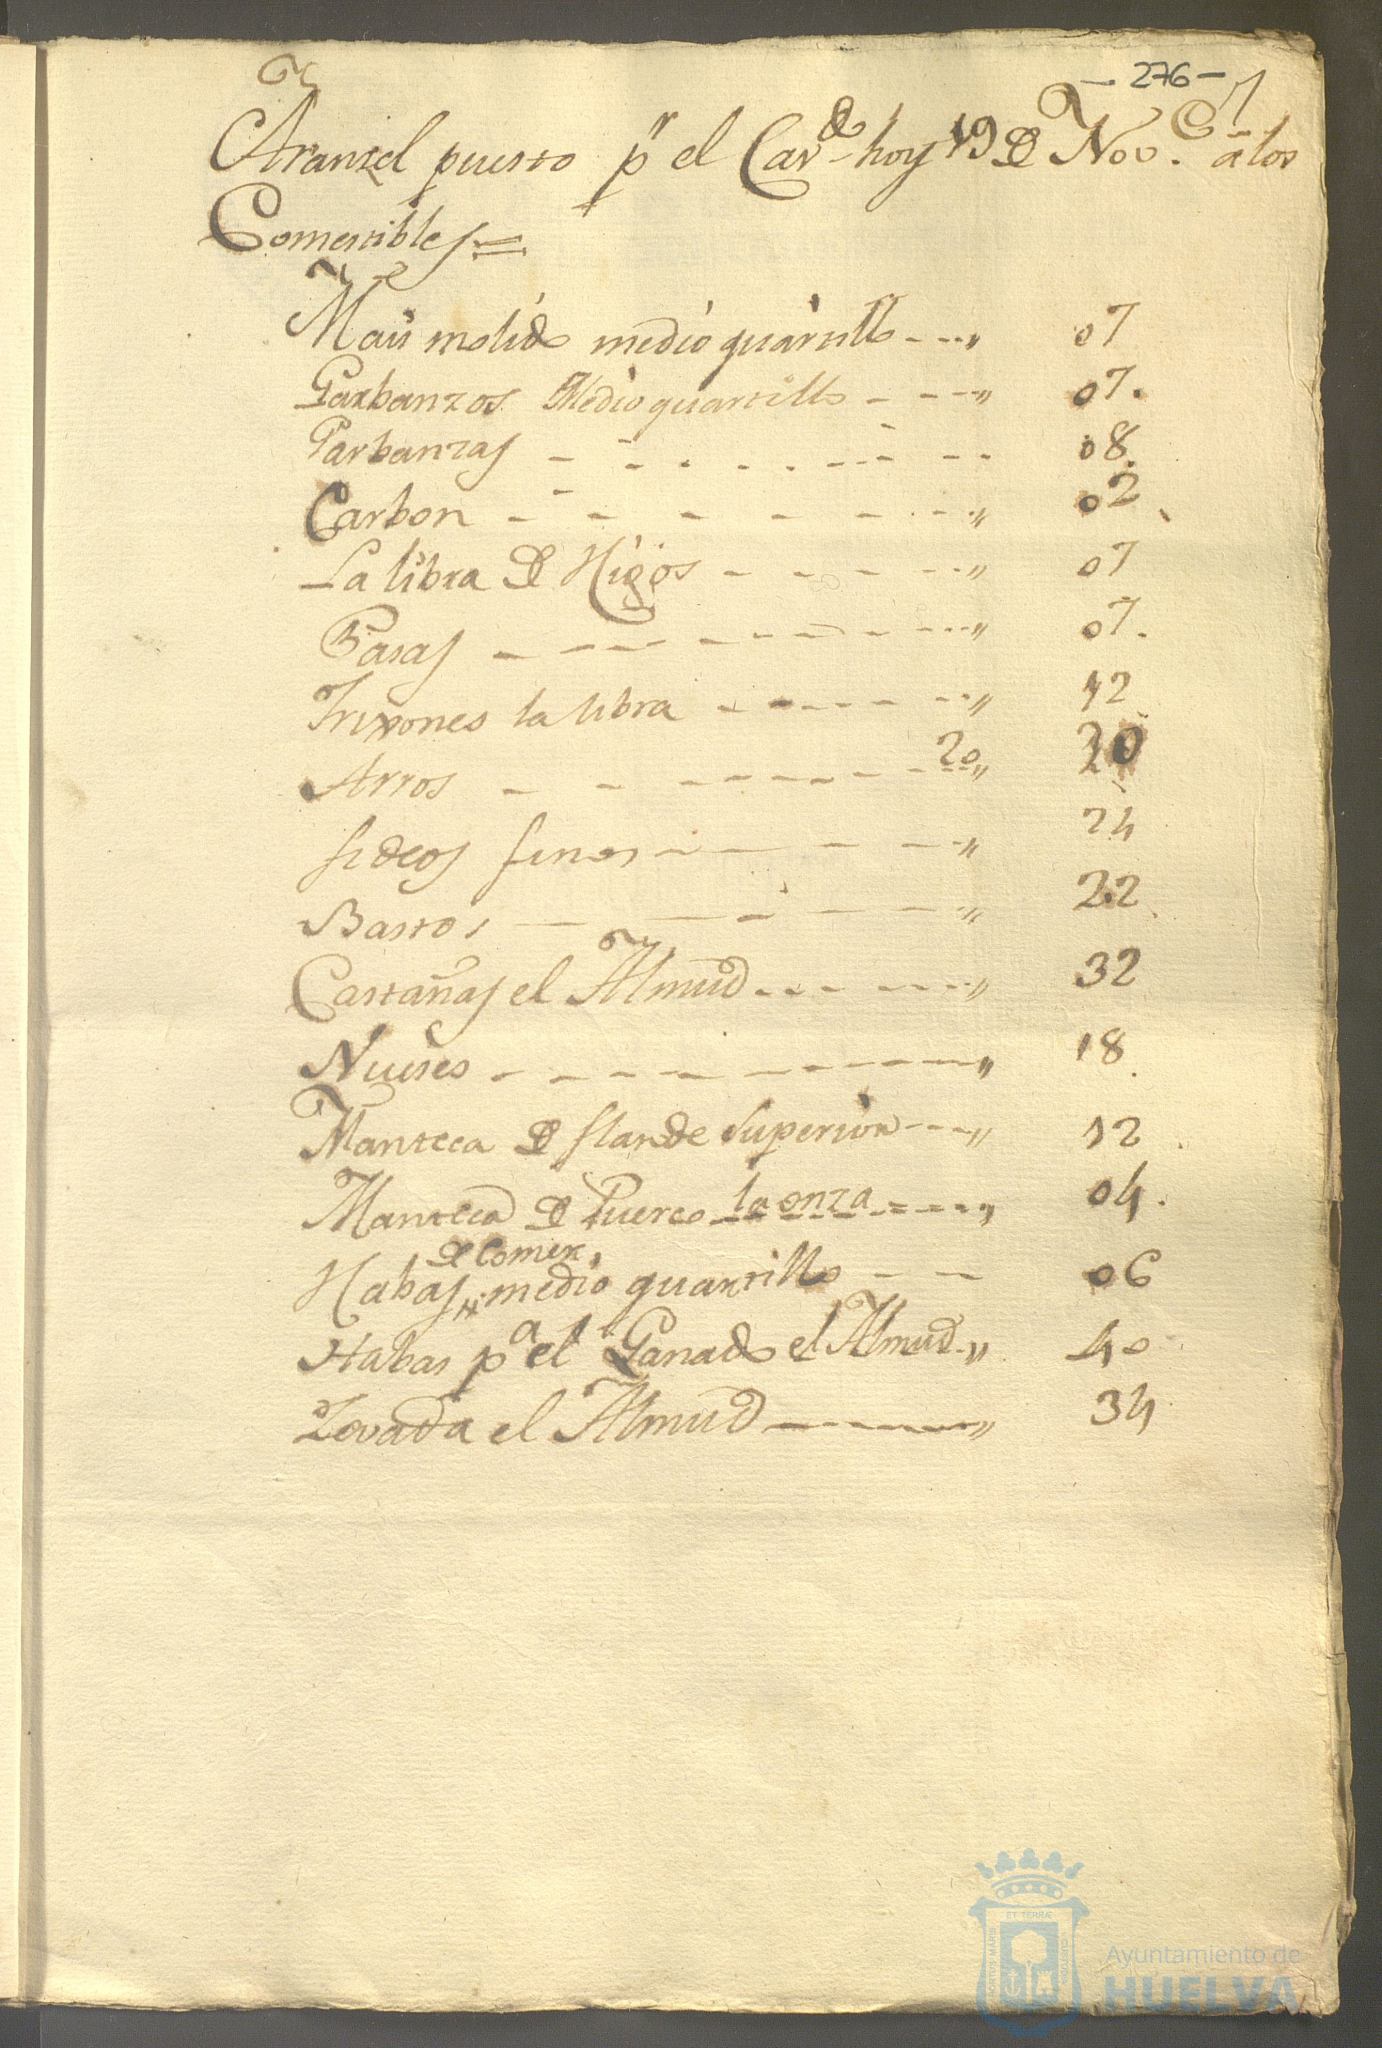 - 276 -
Aranzel puesto pr el Cavdo hoy 19 de Nove. a los
Comestibles =
Mais molido medio quartillo - - - " 07
Garbanzos Medio quartillo - - - " 07.
Garbanzas - - - - - - - - 08.
Carbon - - - - - - - " 02.
La libra de Higos - - - - - " 07
Pasas - - - - - - - - " 07.
Frixones la libra - - - - - - " 12
Arros - - - - - - - 20 " 20
fideos finos - - - - - " 24
Bastos - - - - - " 22
Castañas el Almud - - - - - - " 32
Nueses - - - - - - - - " 18.
Manteca de flande Superior - - - " 12
Manteca de Puerco la onza - - - - " 04.
de Comer
Habas, medio quartillo - - 06
Habas pa el Ganado el Almud - " 40
Zevada el Almud - - - - " 34
PORTUS MARIS ET TERRÆ CUSTODIA
Ayuntamiento de
HUELVA